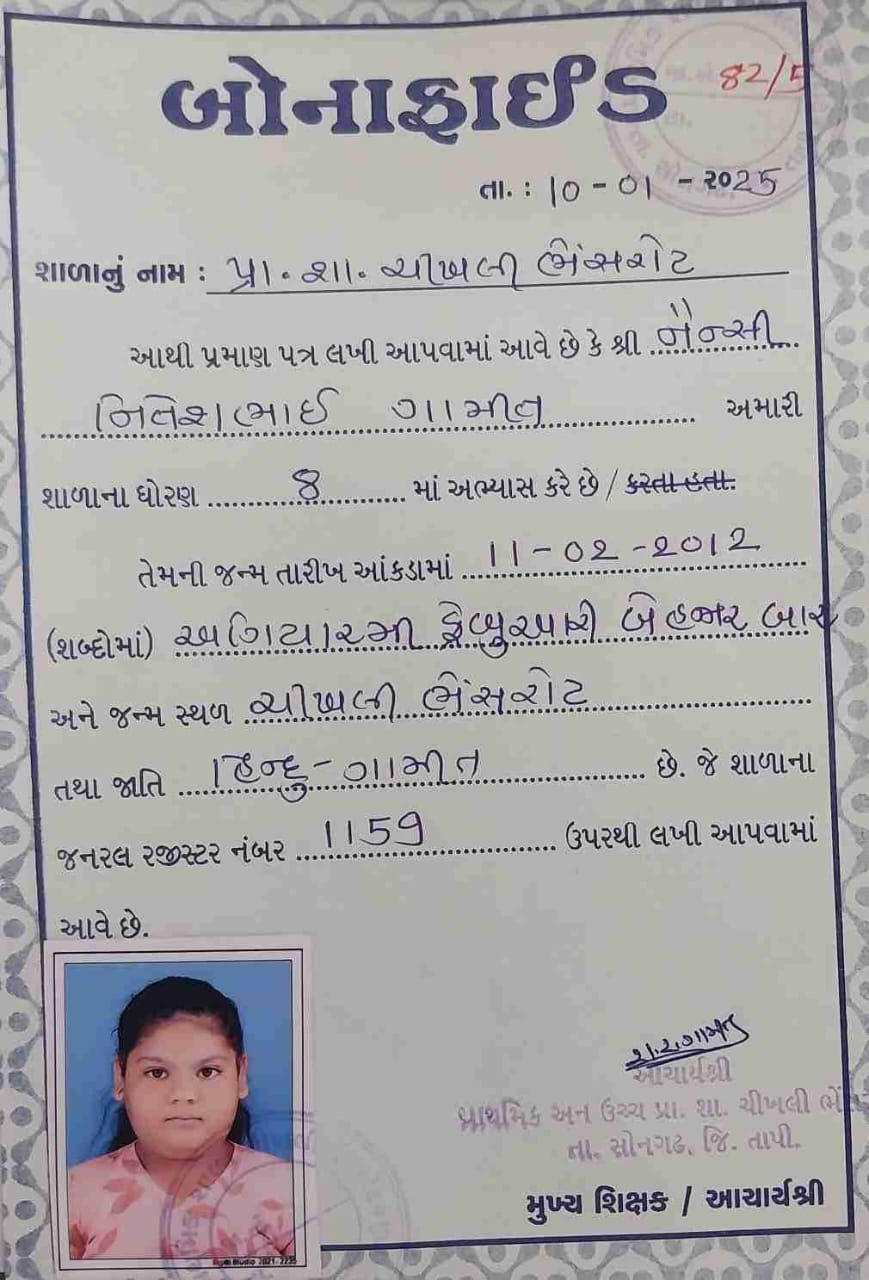 બોનાફાઈડ
82/5
તા. : 10 - 01 - ૨૦25
શાળાનું નામ : પ્રા. શા. ચીખલી ભેંસરોટ
આથી પ્રમાણ પત્ર લખી આપવામાં આવે છે કે શ્રી નૈન્સી
નિતેશભાઈ ગામીત અમારી
શાળાના ધોરણ 8 માં અભ્યાસ કરે છે / કરતા હતા.
તેમની જન્મ તારીખ આંકડામાં 11 - 02 - 2012
(શબ્દોમાં) અગિયારમી ફેબ્રુઆરી બેહજાર બાર
અને જન્મ સ્થળ ચીખલી ભેંસરોટ
તથા જાતિ હિન્દુ - ગામીત છે. જે શાળાના
જનરલ રજીસ્ટર નંબર 1159 ઉપરથી લખી આપવામાં
આવે છે.
આચાર્યશ્રી
પ્રાથમિક અન ઉચ્ચ પ્રા. શા. ચીખલી
તા. સોનગઢ, જિ. તાપી.
મુખ્ય શિક્ષક / આચાર્યશ્રી